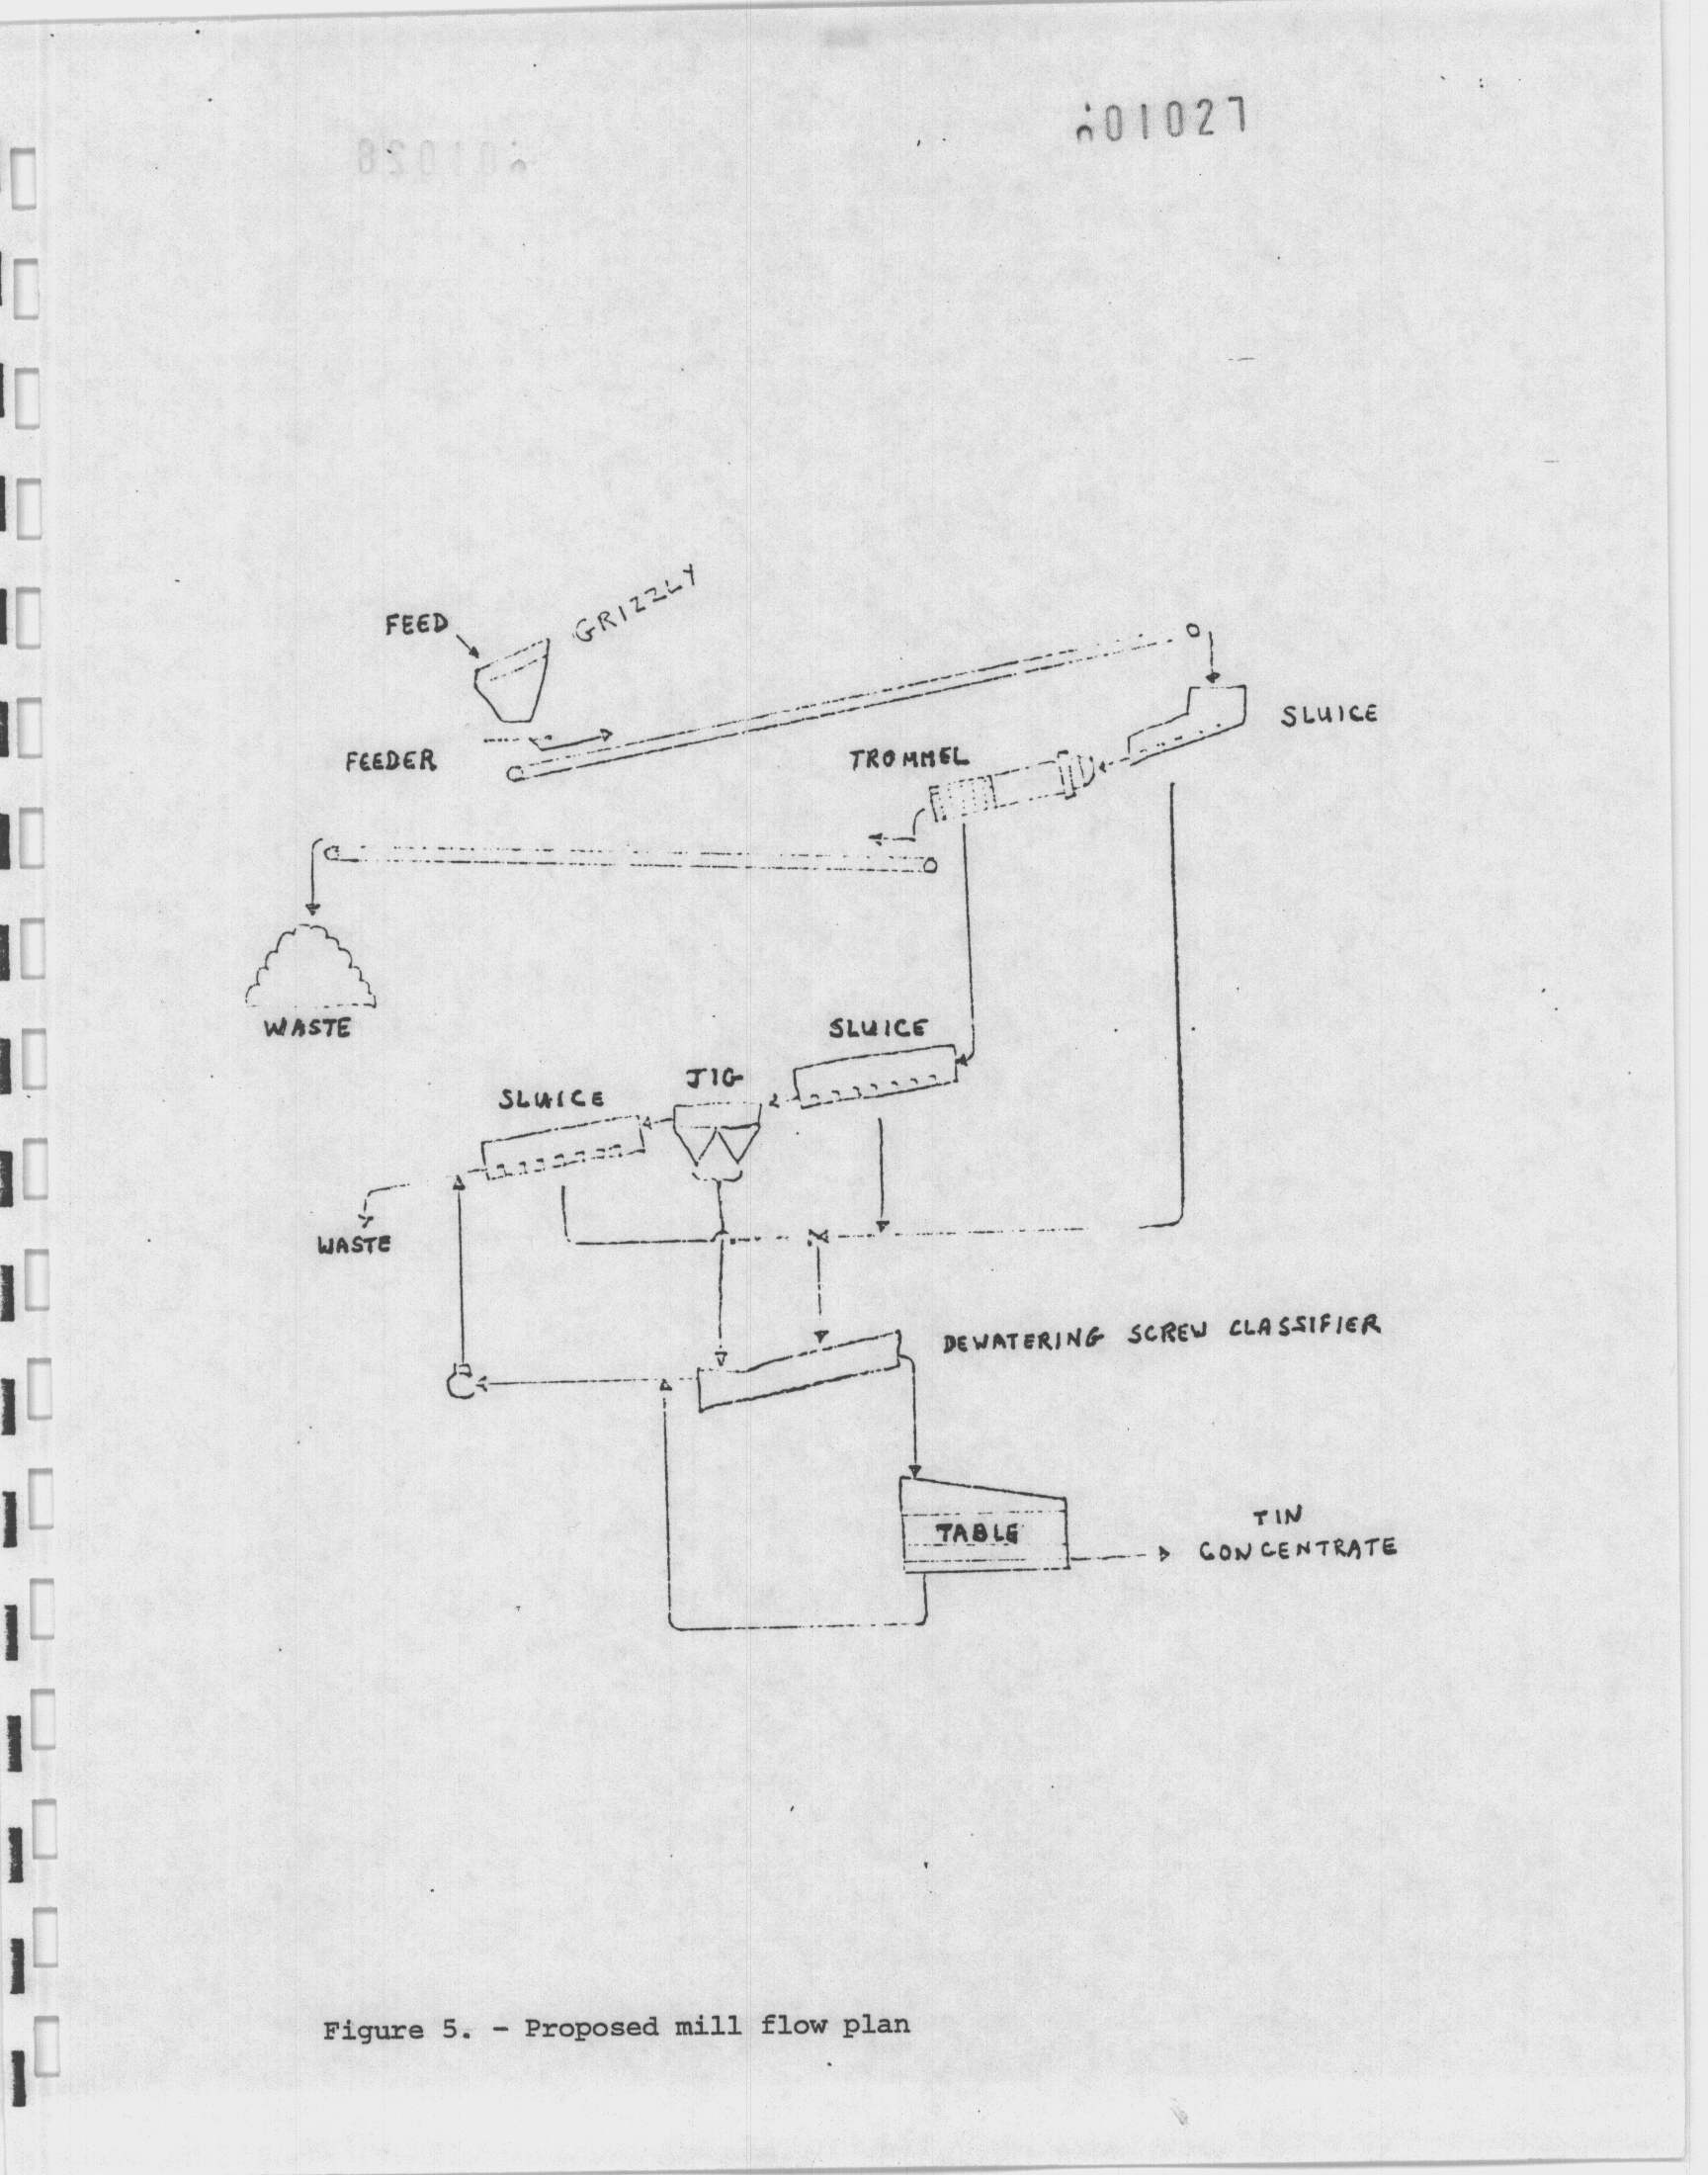 01027
GRIZZLY
FEED
SLUICE
FEEDER
TROMMEL
WASTE
SLUICE
JIG
SLUICE
WASTE
DEWATERING SCREW CLASSIFIER
TABLE
TIN
CONCENTRATE
Figure 5. - Proposed mill flow plan